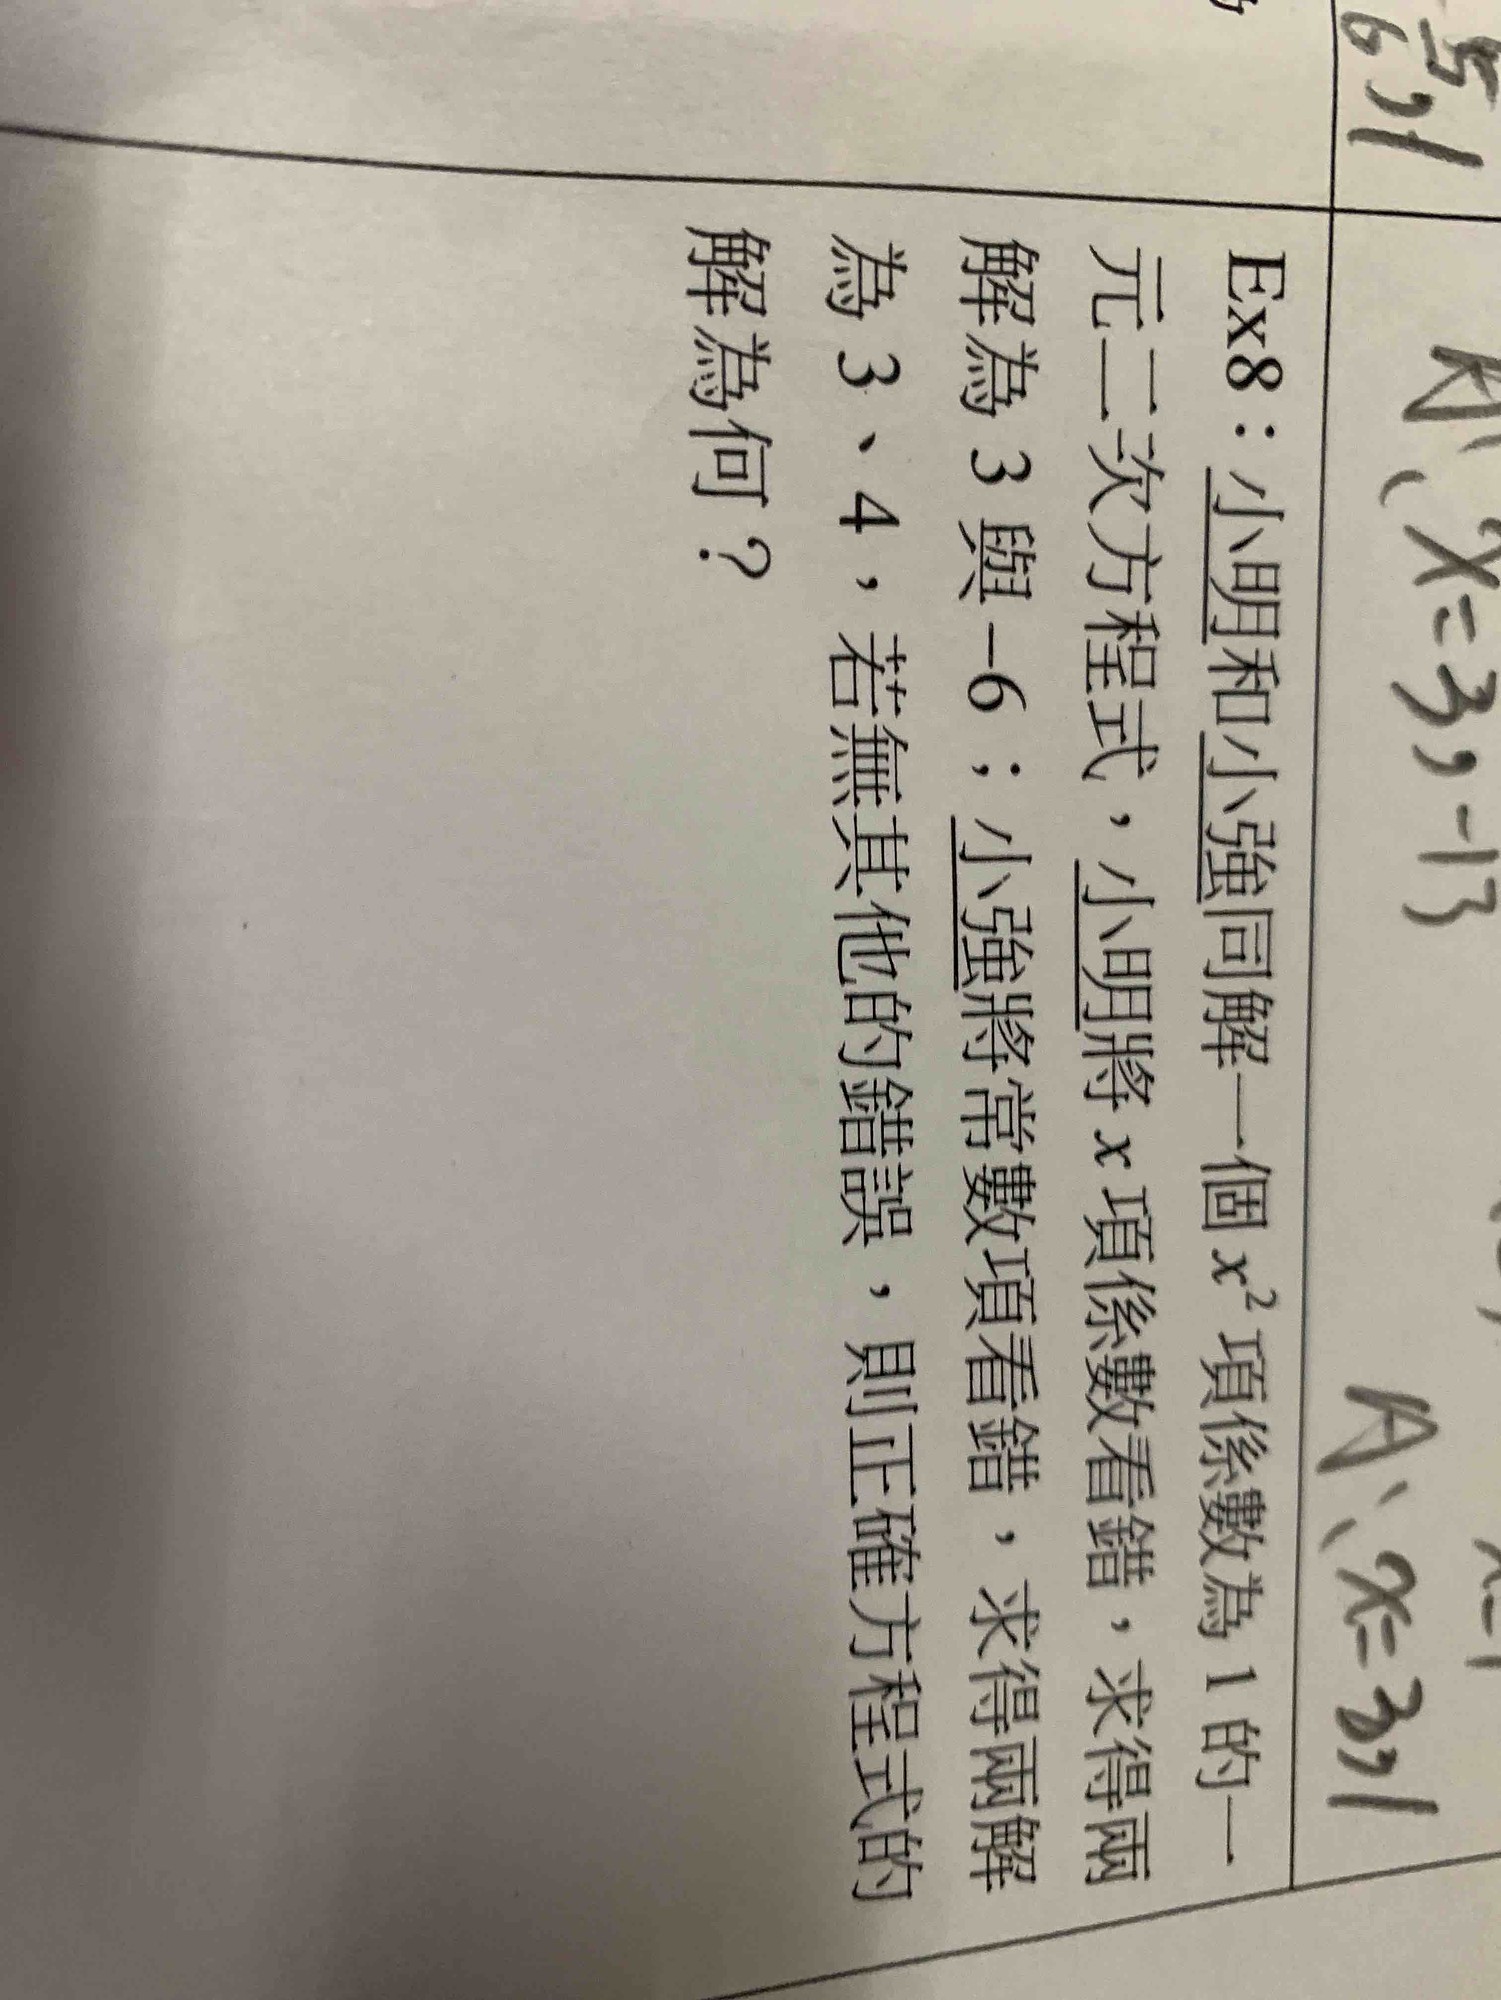 A、x=3,-13
A、x=3,1
Ex8：小明和小強同解一個 x² 項係數為 1 的一
元二次方程式，小明將 x 項係數看錯，求得兩
解為 3 與 -6；小強將常數項看錯，求得兩解
為 3、4，若無其他的錯誤，則正確方程式的
解為何？